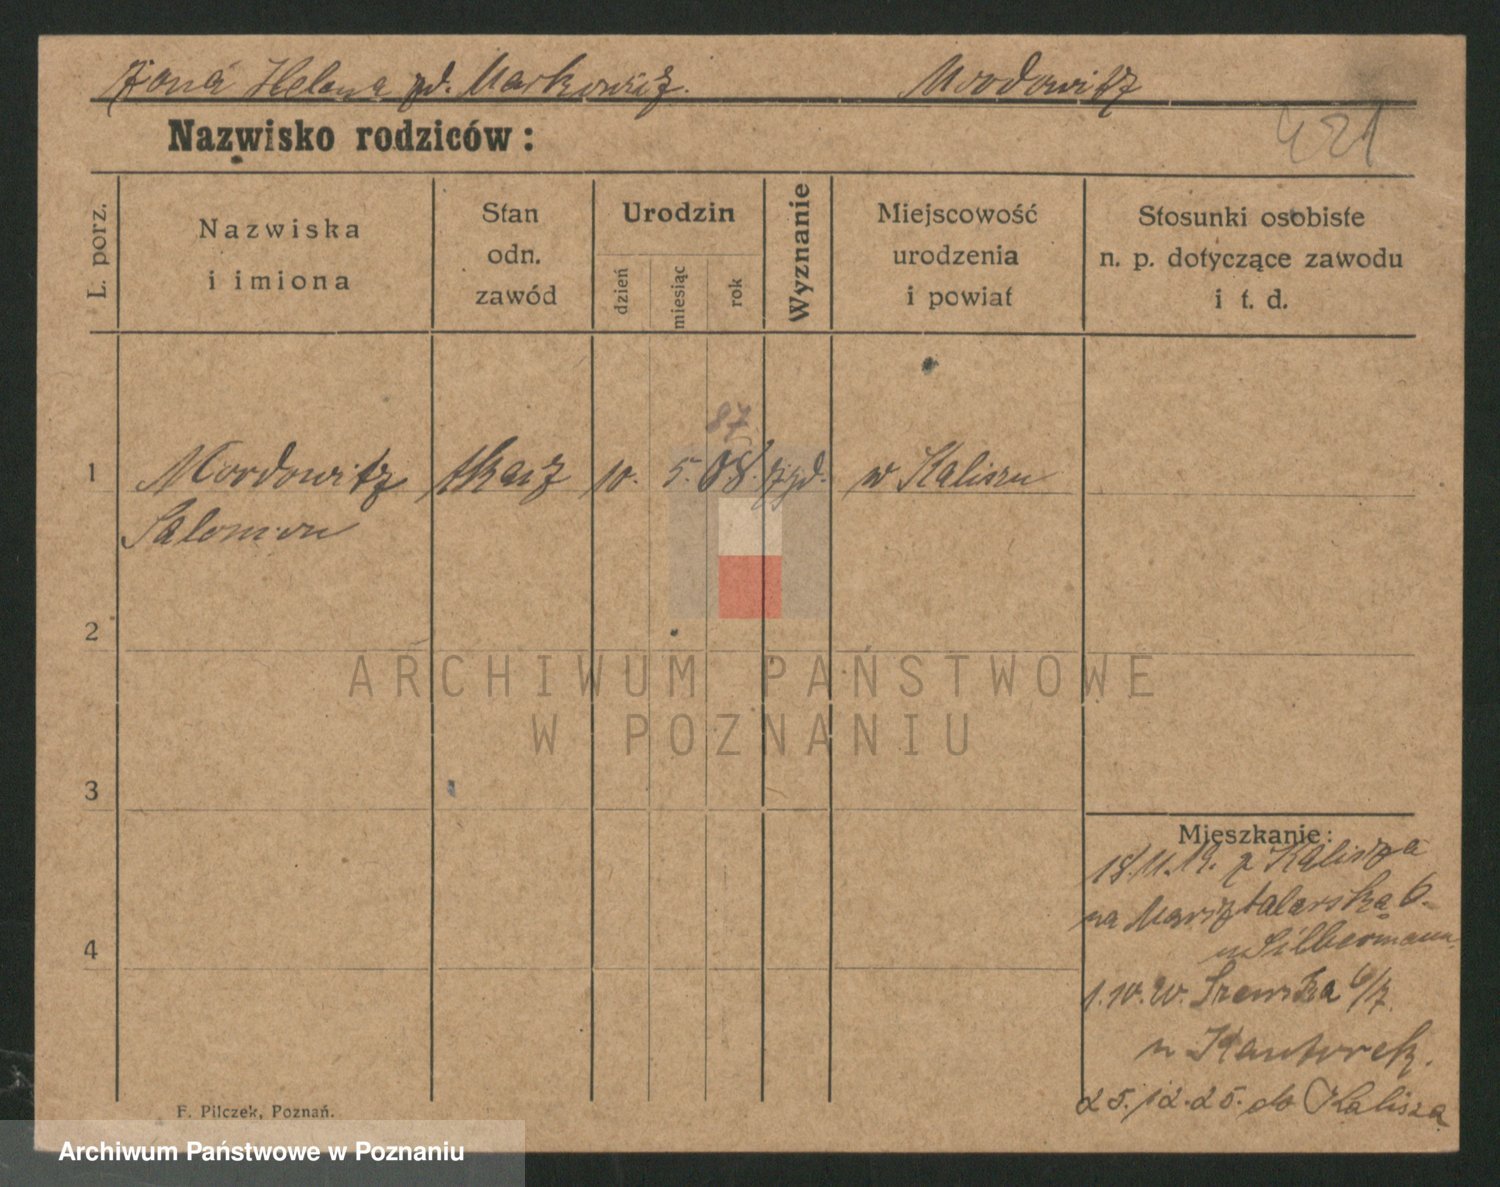 Żona Helena zd. Markowicz. Mordowitz
421
Nazwisko rodziców:
L. porz.
Nazwiska
i imiona
Stan
odn.
zawód
Urodzin
dzień
miesiąc
rok
Wyznanie
Miejscowość
urodzenia
i powiat
Stosunki osobiste
n. p. dotyczące zawodu
i t. d.
87
1 Mordowitz tkacz 10. 5. 08. żyd. w Kaliszu
Salomon
2
ARCHIWUM PAŃSTWOWE
W POZNANIU
3
Mieszkanie:
18.11.19. z Kalisza
na Masztalarska 6.
u Silbermann
4
1.10. Szewska 6/7
u Kantorek.
25.12.25. do Kalisza
F. Pilczek, Poznań.
Archiwum Państwowe w Poznaniu